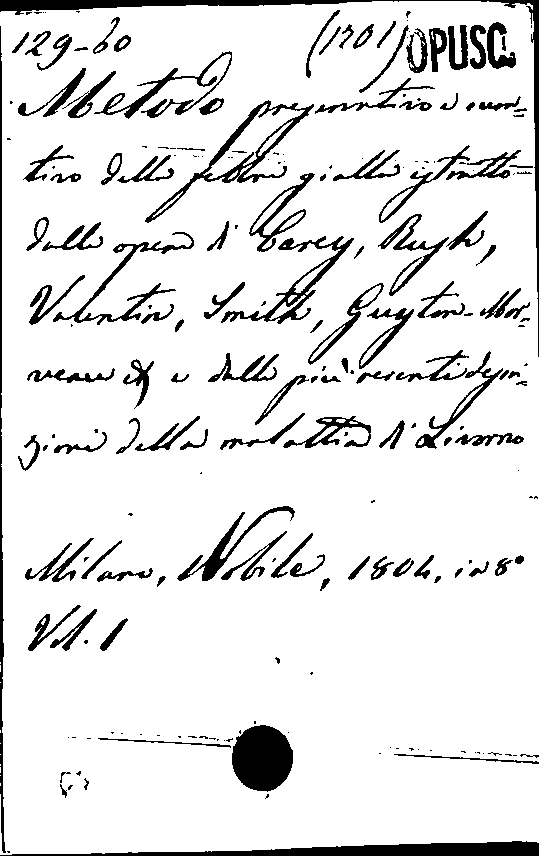 129-60 (1701) OPUSC.
Metodo preservativo e cura=
tivo della febbre gialla estratto
dalle opere di Carey, Rush,
Valentin, Smith, Guyton-Mor=
veau & e dalle più recenti descri=
zioni della malattia di Livorno
Milano, Nobile, 1804, in 8°
Vol. 1